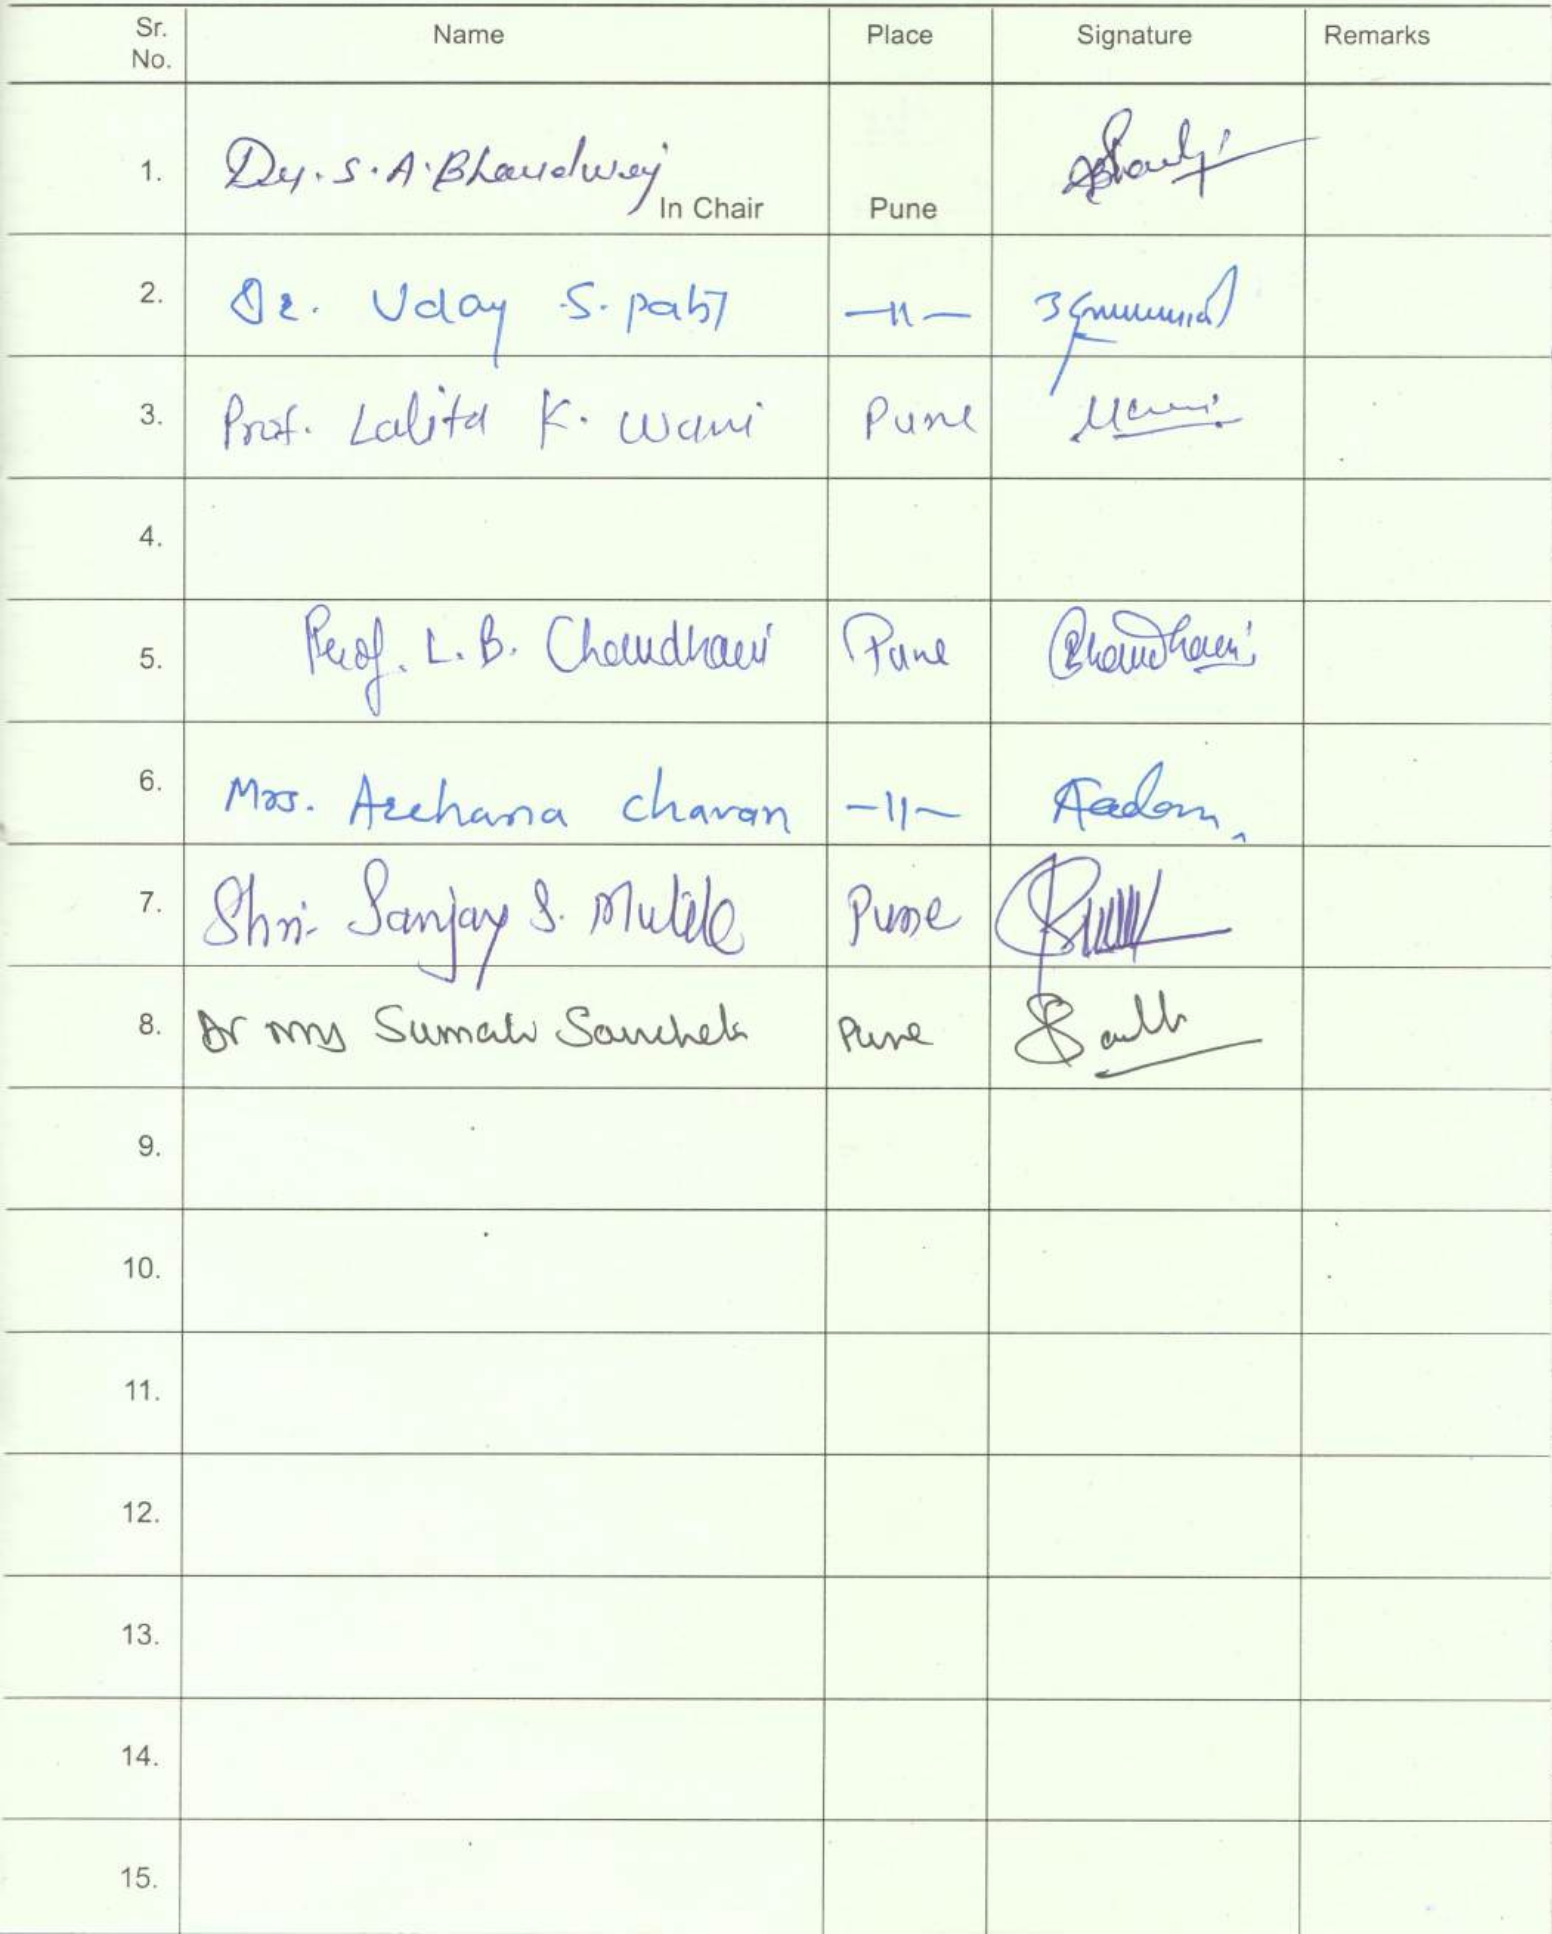 Sr. No. Name Place Signature Remarks
1. Dr. S. A. Bhardwaj In Chair Pune
2. Dr. Uday S. patil —11—
3. Prof. Lalita K. Wani Pune
4.
5. Prof. L. B. Chaudhari Pune Chaudhari
6. Mrs. Archana Chavan —11—
7. Shri. Sanjay S. Pune
8. Dr Mrs Pune
9.
10.
11.
12.
13.
14.
15.